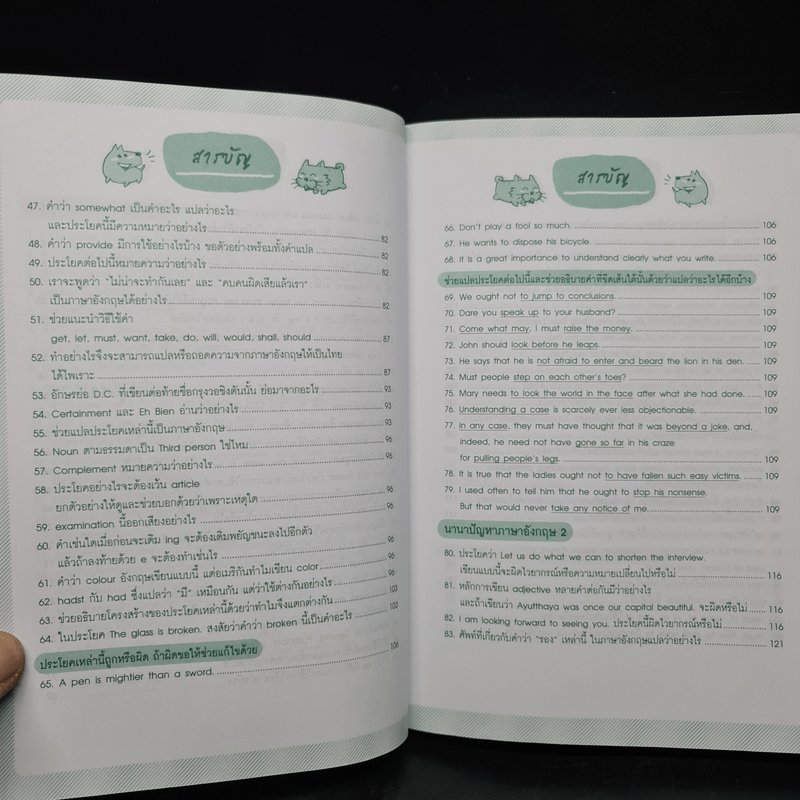 สารบัญ
47. คำว่า somewhat เป็นคำอะไร แปลว่าอะไร
และประโยคนี้มีความหมายว่าอย่างไร 82
48. คำว่า provide มีการใช้อย่างไรบ้าง ขอตัวอย่างพร้อมทั้งคำแปล 82
49. ประโยคต่อไปนี้หมายความว่าอย่างไร 82
50. เราจะพูดว่า "ไม่น่าจะทำกันเลย" และ "คบคนผิดเสียแล้วเรา"
เป็นภาษาอังกฤษได้อย่างไร 82
51. ช่วยแนะนำวิธีใช้คำ
get, let, must, want, take, do, will, would, shall, should 87
52. ทำอย่างไรจึงจะสามารถแปลหรือถอดความจากภาษาอังกฤษให้เป็นไทย
ได้ไพเราะ 87
53. อักษรย่อ D.C. ที่เขียนต่อท้ายชื่อกรุงวอชิงตันนั้น ย่อมาจากอะไร 93
54. Certainment และ Eh Bien อ่านว่าอย่างไร 93
55. ช่วยแปลประโยคเหล่านี้เป็นภาษาอังกฤษ 93
56. Noun ตามธรรมดาเป็น Third person ใช่ไหม 96
57. Complement หมายความว่าอย่างไร 96
58. ประโยคอย่างไรจะต้องเว้น article
ยกตัวอย่างให้ดูและช่วยบอกด้วยเพราะเหตุใด 96
59. examination นี้ออกเสียงอย่างไร 96
60. คำเช่นใดเมื่อก่อนจะเติม ing จะต้องเติมพยัญชนะลงไปอีกตัว
แล้วถ้าลงท้ายด้วย e จะต้องทำเช่นไร 96
61. คำว่า colour อังกฤษเขียนแบบนี้ แต่อเมริกันทำไมเขียน color 96
62. hadst กับ had ซึ่งแปลว่า "มี" เหมือนกัน แต่ว่าใช้ต่างกันอย่างไร 103
63. ช่วยอธิบายโครงสร้างของประโยคเหล่านี้ด้วยว่าทำไมจึงแตกต่างกัน 103
64. ในประโยค The glass is broken. สงสัยว่าคำว่า broken นี้เป็นคำอะไร 103
ประโยคเหล่านี้ถูกหรือผิด ถ้าผิดขอให้ช่วยแก้ไขด้วย
65. A pen is mightier than a sword. 106
สารบัญ
66. Don't play a fool so much. 106
67. He wants to dispose his bicycle. 106
68. It is a great importance to understand clearly what you write. 106
ช่วยแปลประโยคต่อไปนี้และช่วยอธิบายคำที่ขีดเส้นใต้นั้นด้วยว่าแปลว่าอะไรได้อีกบ้าง
69. We ought not to jump to conclusions. 109
70. Dare you speak up to your husband? 109
71. Come what may, I must raise the money. 109
72. John should look before he leaps. 109
73. He says that he is not afraid to enter and beard the lion in his den. 109
74. Must people step on each other's toes? 109
75. Mary needs to look the world in the face after what she had done. 109
76. Understanding a case is scarcely ever less objectionable. 109
77. In any case, they must have thought that it was beyond a joke, and,
indeed, he need not have gone so far in his craze
for pulling people's legs. 109
78. It is true that the ladies ought not to have fallen such easy victims. 109
79. I used often to tell him that he ought to stop his nonsense.
But that would never take any notice of me. 109
นานาปัญหาภาษาอังกฤษ 2
80. ประโยคว่า Let us do what we can to shorten the interview.
เขียนแบบนี้จะผิดไวยากรณ์หรือความหมายเปลี่ยนไปหรือไม่ 116
81. หลักการเขียน adjective หลายคำต่อกันมีว่าอย่างไร
และถ้าเขียนว่า Ayutthaya was once our capital beautiful. จะผิดหรือไม่ 116
82. I am looking forward to seeing you. ประโยคนี้ผิดไวยากรณ์หรือไม่ 116
83. ศัพท์ที่เกี่ยวกับคำว่า "รอง" เหล่านี้ ในภาษาอังกฤษแปลว่าอย่างไร 121